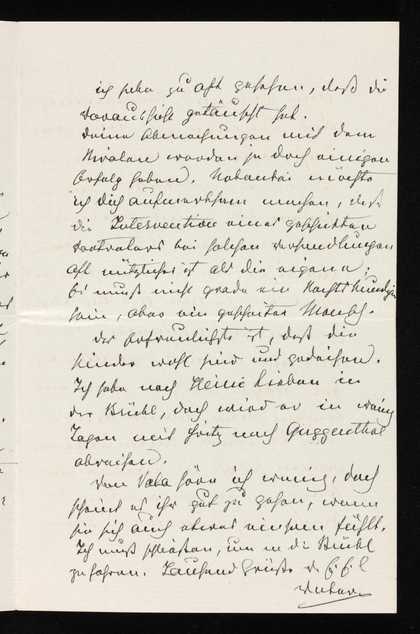 ich habe zu oft gesehen, daß die
Voraussicht getäuscht hat.
Deine Abmachungen mit dem
Rivalen werden ja doch einigen
Erfolg haben. Nebenbei möchte
ich Dich aufmerksam machen, daß
die Intervention eines geschickten
Vertreters bei solchen Verhandlungen
oft nützlicher ist als die eigene;
Es muß nicht grade ein Rechtskundiger
sein, aber ein gescheiter Mensch.
Das Erfreulichste ist, daß die
Kinder wohl sind und gedeihen.
Ich habe noch Heinis Lieben in
der Brühl, doch wird er in wenig
Tagen mit Fritz nach Guggenthal
abreisen.
Von höre ich wenig, doch
scheint es ihr gut zu gehen, wenn
sie sich auch etwas einsam fühlt.
Ich muß schließen, um in die Brühl
zu fahren. Tausend Grüße